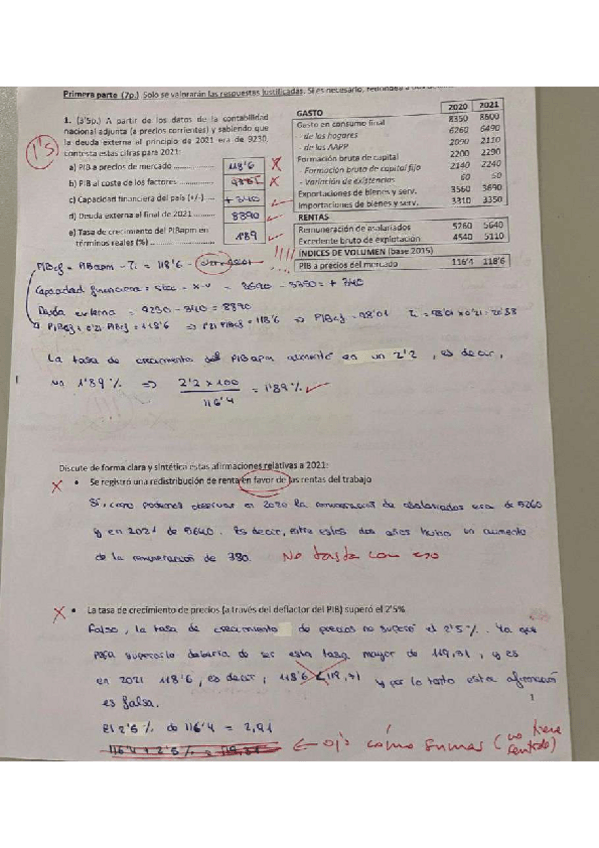 Primera parte (7p.) Solo se valorarán las respuestas justificadas. Si es necesario,
1. (3'5p.) A partir de los datos de la contabilidad
nacional adjunta (a precios corrientes) y sabiendo que
la deuda externa al principio de 2021 era de 9230,
contesta estas cifras para 2021:
1'5
a) PIB a precios de mercado 118'6 x
b) PIB al coste de los factores x
c) Capacidad financiera del país (+/-) + 340
d) Deuda externa al final de 2021 8890
e) Tasa de crecimiento del PIBapm en
términos reales (%) 1'89
2020 2021
GASTO
Gasto en consumo final 8350 8600
- de los hogares 6260 6490
- de las AAPP 2090 2110
Formación bruta de capital 2200 2290
- Formación bruta de capital fijo 2140 2240
- Variación de existencias 60 50
Exportaciones de bienes y serv. 3560 3690
Importaciones de bienes y serv. 3310 3350
RENTAS
Remuneración de asalariados 5260 5640
Excedente bruto de explotación 4540 5110
ÍNDICES DE VOLUMEN (base 2015)
PIB a precios del mercado 116'4 118'6
PIBcf = PIBapm - Ti = 118'6 -
Capacidad financiera = = x - v = 3690 - 3350 = + 340
Deuda externa = 9230 - 340 = 8890
PIBcf + 0'21 PIBcf = 118'6 => 1'21 PIBcf = 118'6 => PIBcf = 98'01
La tasa de crecimiento del PIBapm aumentó en un 2'2 , es decir,
un 1'89 % => 2'2 x 100 = 1'89 %
116'4
Discute de forma clara y sintética estas afirmaciones relativas a 2021:
x • Se registró una redistribución de renta en favor de las rentas del trabajo
Sí, como podemos observar en 2020 la remuneración de asalariados era de 5260
y en 2021 de 5640. Es decir, entre estos dos años hubo un aumento
de la remuneración de 380. No basta con eso
x • La tasa de crecimiento de precios (a través del deflactor del PIB) superó el 2'5%
Falso, la tasa de crecimiento de precios no superó el 2'5 %. Ya que
para superarlo debería de ser esta tasa mayor de 119,31, y es
en 2021 118'6, es decir, 118'6 < 119,31 y por lo tanto esta afirmación
es falsa.
1
El 2'5 % de 116'4 = 2,91
116'4 + 2'5 % = 119,31 ← ojo cómo sumas (no tiene
sentido)